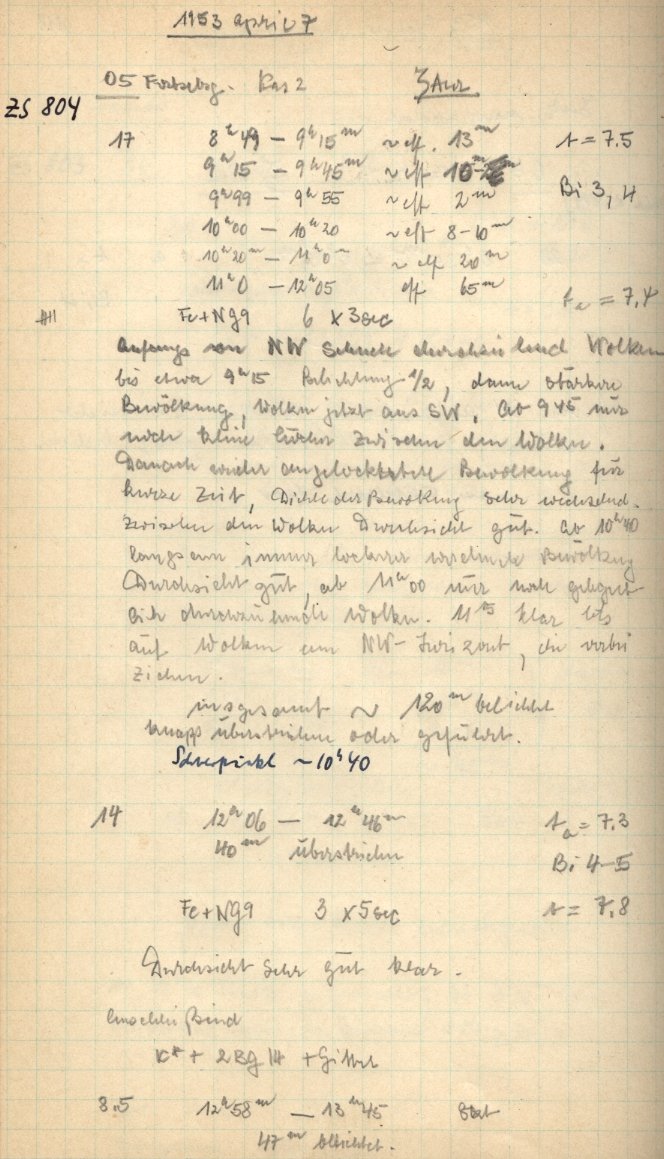 1953 april 7
05 Fortsetzg. Kas 2 ζ Aur
ZS 804
17 8ʰ49 – 9ʰ15ᵐ ~ eff. 13ᵐ t = 7.5
9ʰ15 – 9ʰ45ᵐ ~ eff 10ᵐ Bi 3, 4
9ʰ – 9ʰ55 ~ eff 2ᵐ
10ʰ00 – 10ʰ20 ~ eff 8–10ᵐ
10ʰ20ᵐ – 11ʰ0ᵐ ~ eff 20ᵐ
11ʰ0 – 12ʰ05 eff 65ᵐ tₐ = 7,4
Fe+NG9 6 x 3sec
Anfangs von NW Wolken
bis etwa 9ʰ15 Belichtung 1/2, dann stärkere
Bewölkung, Wolken jetzt aus SW. Ab 9 45 nur
noch kleine Lücken zwischen den Wolken.
Danach wieder aufgelockertere Bewölkung für
kurze Zeit, Dichte der Bewölkung sehr wechselnd.
Zwischen den Wolken Durchsicht gut. Ab 10ʰ40
langsam immer lockerer werdende Bewölkung
Durchsicht gut, ab 11ʰ00 nur noch
Wolken. 11 klar bis
auf Wolken am NW-Horizont, die vorbei
ziehen.
insgesamt ~ 120ᵐ belichtet
knapp überstrichen oder geführt.
~ 10ʰ40
14 12ʰ06 – 12ʰ46ᵐ tₐ = 7.3
40ᵐ überstrichen Bi 4–5
Fe+NG9 3 x 5sec t = 7.8
Durchsicht sehr gut klar.
Anschließend
+ 2 BG 14 + Gitter
8.5 12ʰ58ᵐ – 13ʰ45
47ᵐ belichtet.